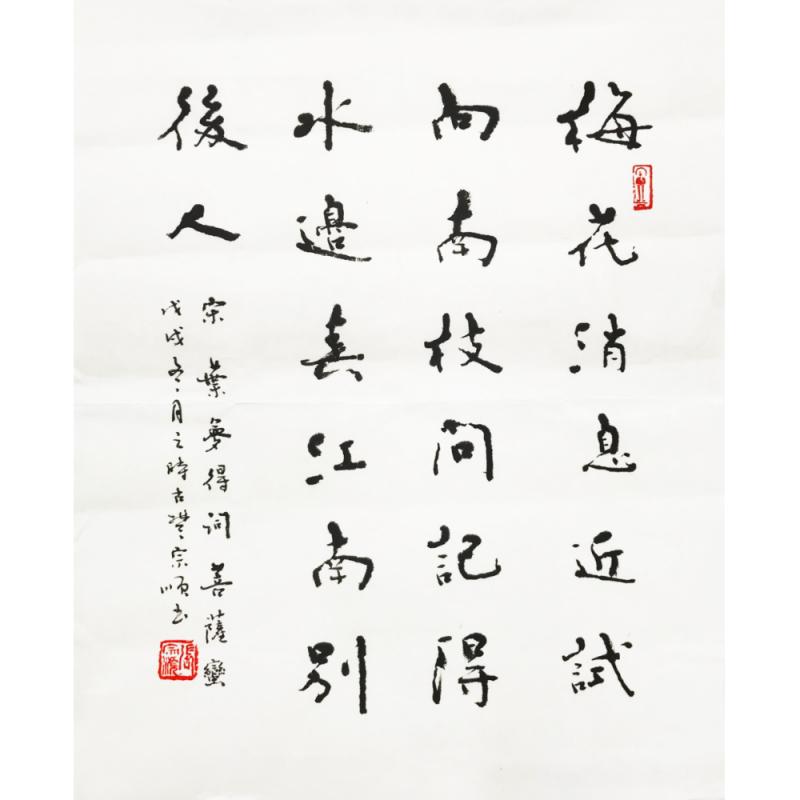 梅花消息近試
向南枝問記得
水邊春江南別
後人
宋葉夢得詞菩薩蠻
戊戌冬月之時古楚宗順書